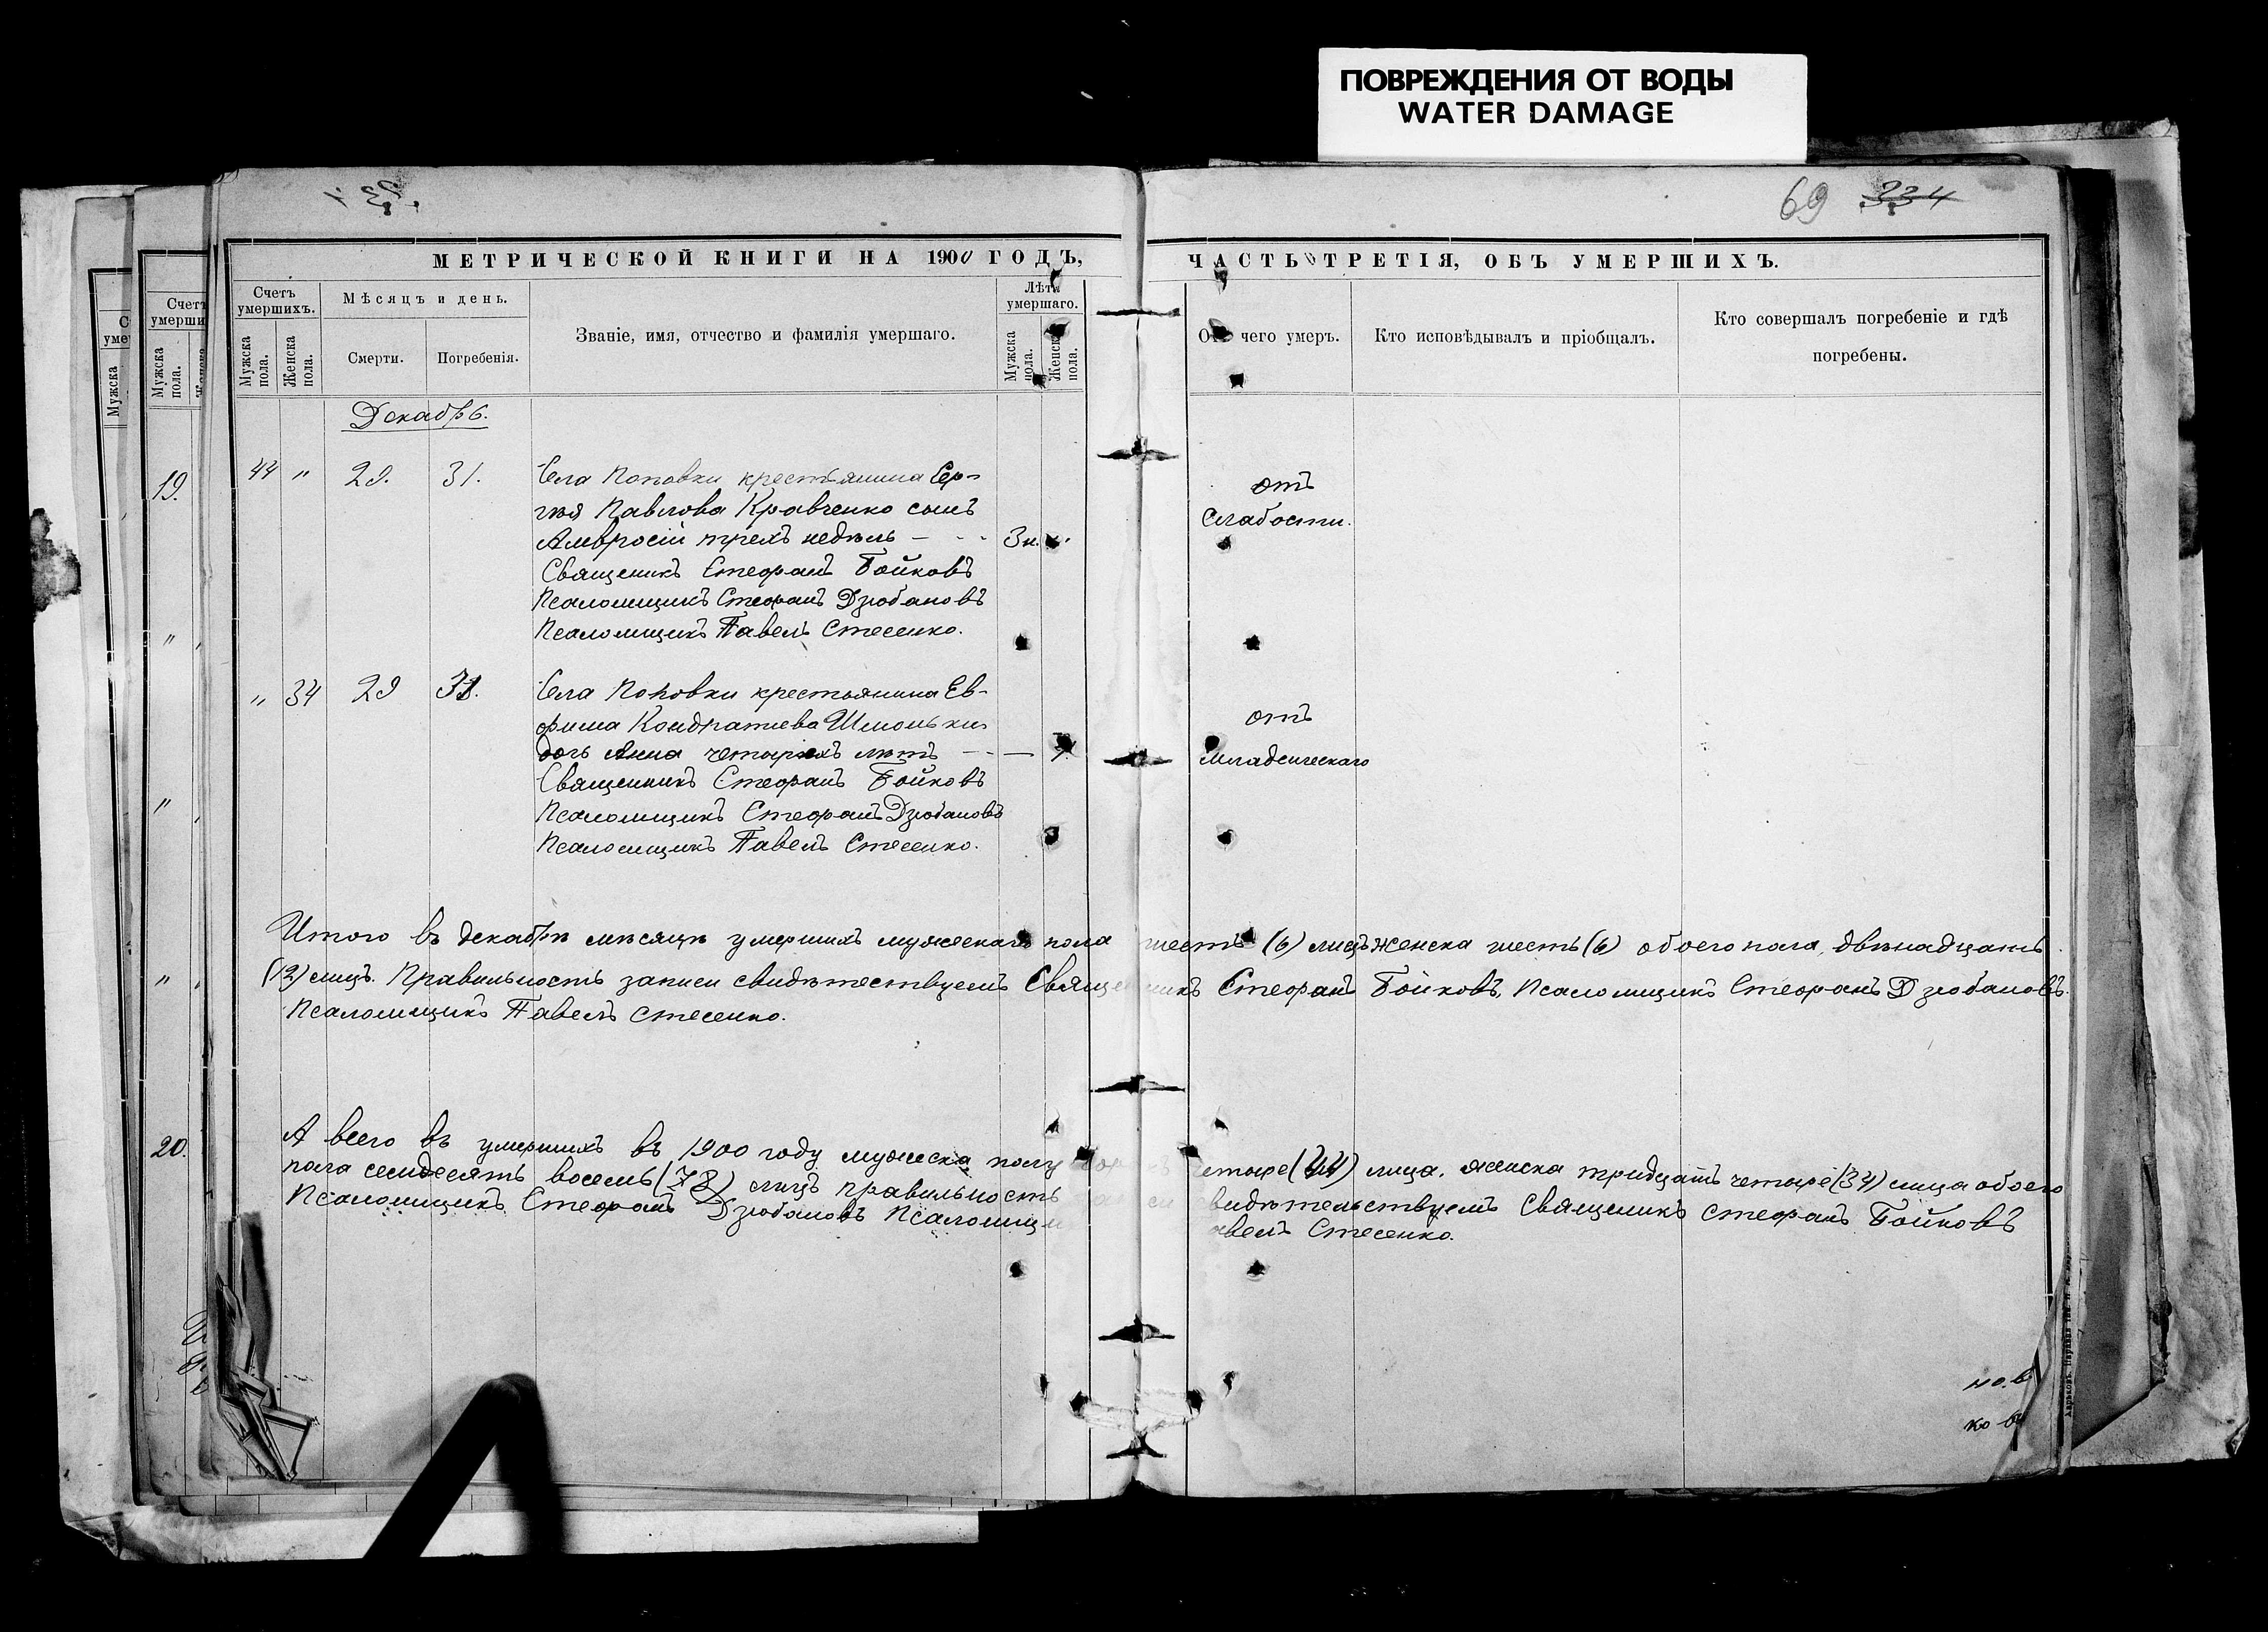 ПОВРЕЖДЕНИЯ ОТ ВОДЫ
WATER DAMAGE
69 334
МЕТРИЧЕСКОЙ КНИГИ НА 1900 ГОДЪ,
ЧАСТЬ ТРЕТІЯ, ОБЪ УМЕРШИХЪ.
Счетъ умершихъ.
Мужска пола.
Женска пола.
Мѣсяцъ и день.
Смерти.
Погребенія.
Званіе, имя, отчество и фамилія умершаго.
Лѣта умершаго.
Мужска пола.
Женска пола.
Отъ чего умеръ.
Кто исповѣдывалъ и пріобщалъ.
Кто совершалъ погребеніе и гдѣ
погребены.
Декабрь.
44 " 29. 31. Села Поповки крестьянина Сер-
гѣя Павлова Кравченко сынъ
Амвросій трехъ недѣль - - - 3 н.
Священикъ Стефанъ Бойковъ
Псаломщикъ Стефанъ Дзюбановъ
Псаломщикъ Павелъ Стесенко.
отъ
Слабости.
" 34 29 31. Села Поповки крестьянина Ев-
фима Кондратиева
дочь Анна четырехъ лѣтъ - -
Священникъ Стефанъ Бойковъ
Псаломщикъ Стефанъ Дзюбановъ
Псаломщикъ Павелъ Стесенко.
отъ
младенческаго
Итого въ декабрѣ мѣсяцѣ умершихъ мужескаго пола шесть (6) лицъ женска шесть (6) обоего пола, двѣнадцать
(12) лицъ. Правильность записи свидѣтествуемъ Священикъ Стефанъ Бойковъ, Псаломщикъ Стефанъ Дзюбановъ.
Псаломщикъ Павелъ Стесенко.
А всего въ умершихъ въ 1900 году мужеска полу четыре (44) лица, женска тридцать четыре (34) лица обоего
пола семдесять восемь (78) лицъ правильность видѣтельствуемъ Священикъ Стефанъ Бойковъ
Псаломщикъ Стефанъ Дзюбановъ Псаломщи авелъ Стесенко.
19.
20.